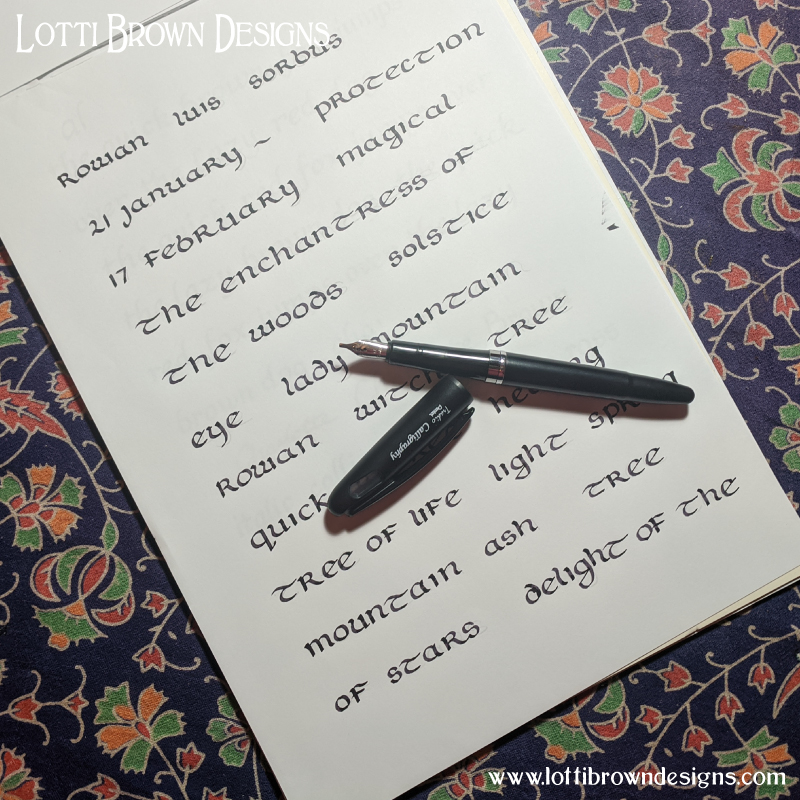 Lotti Brown Designs
Rowan luis sorbus
21 January ~ protection
17 February magical
The enchantress of
The woods solstice
eye lady mountain
Rowan tree
quick light
Tree of life
mountain ash tree
of stars delight of the
Tradio Calligraphy
Pentel
www.lottibrowndesigns.com